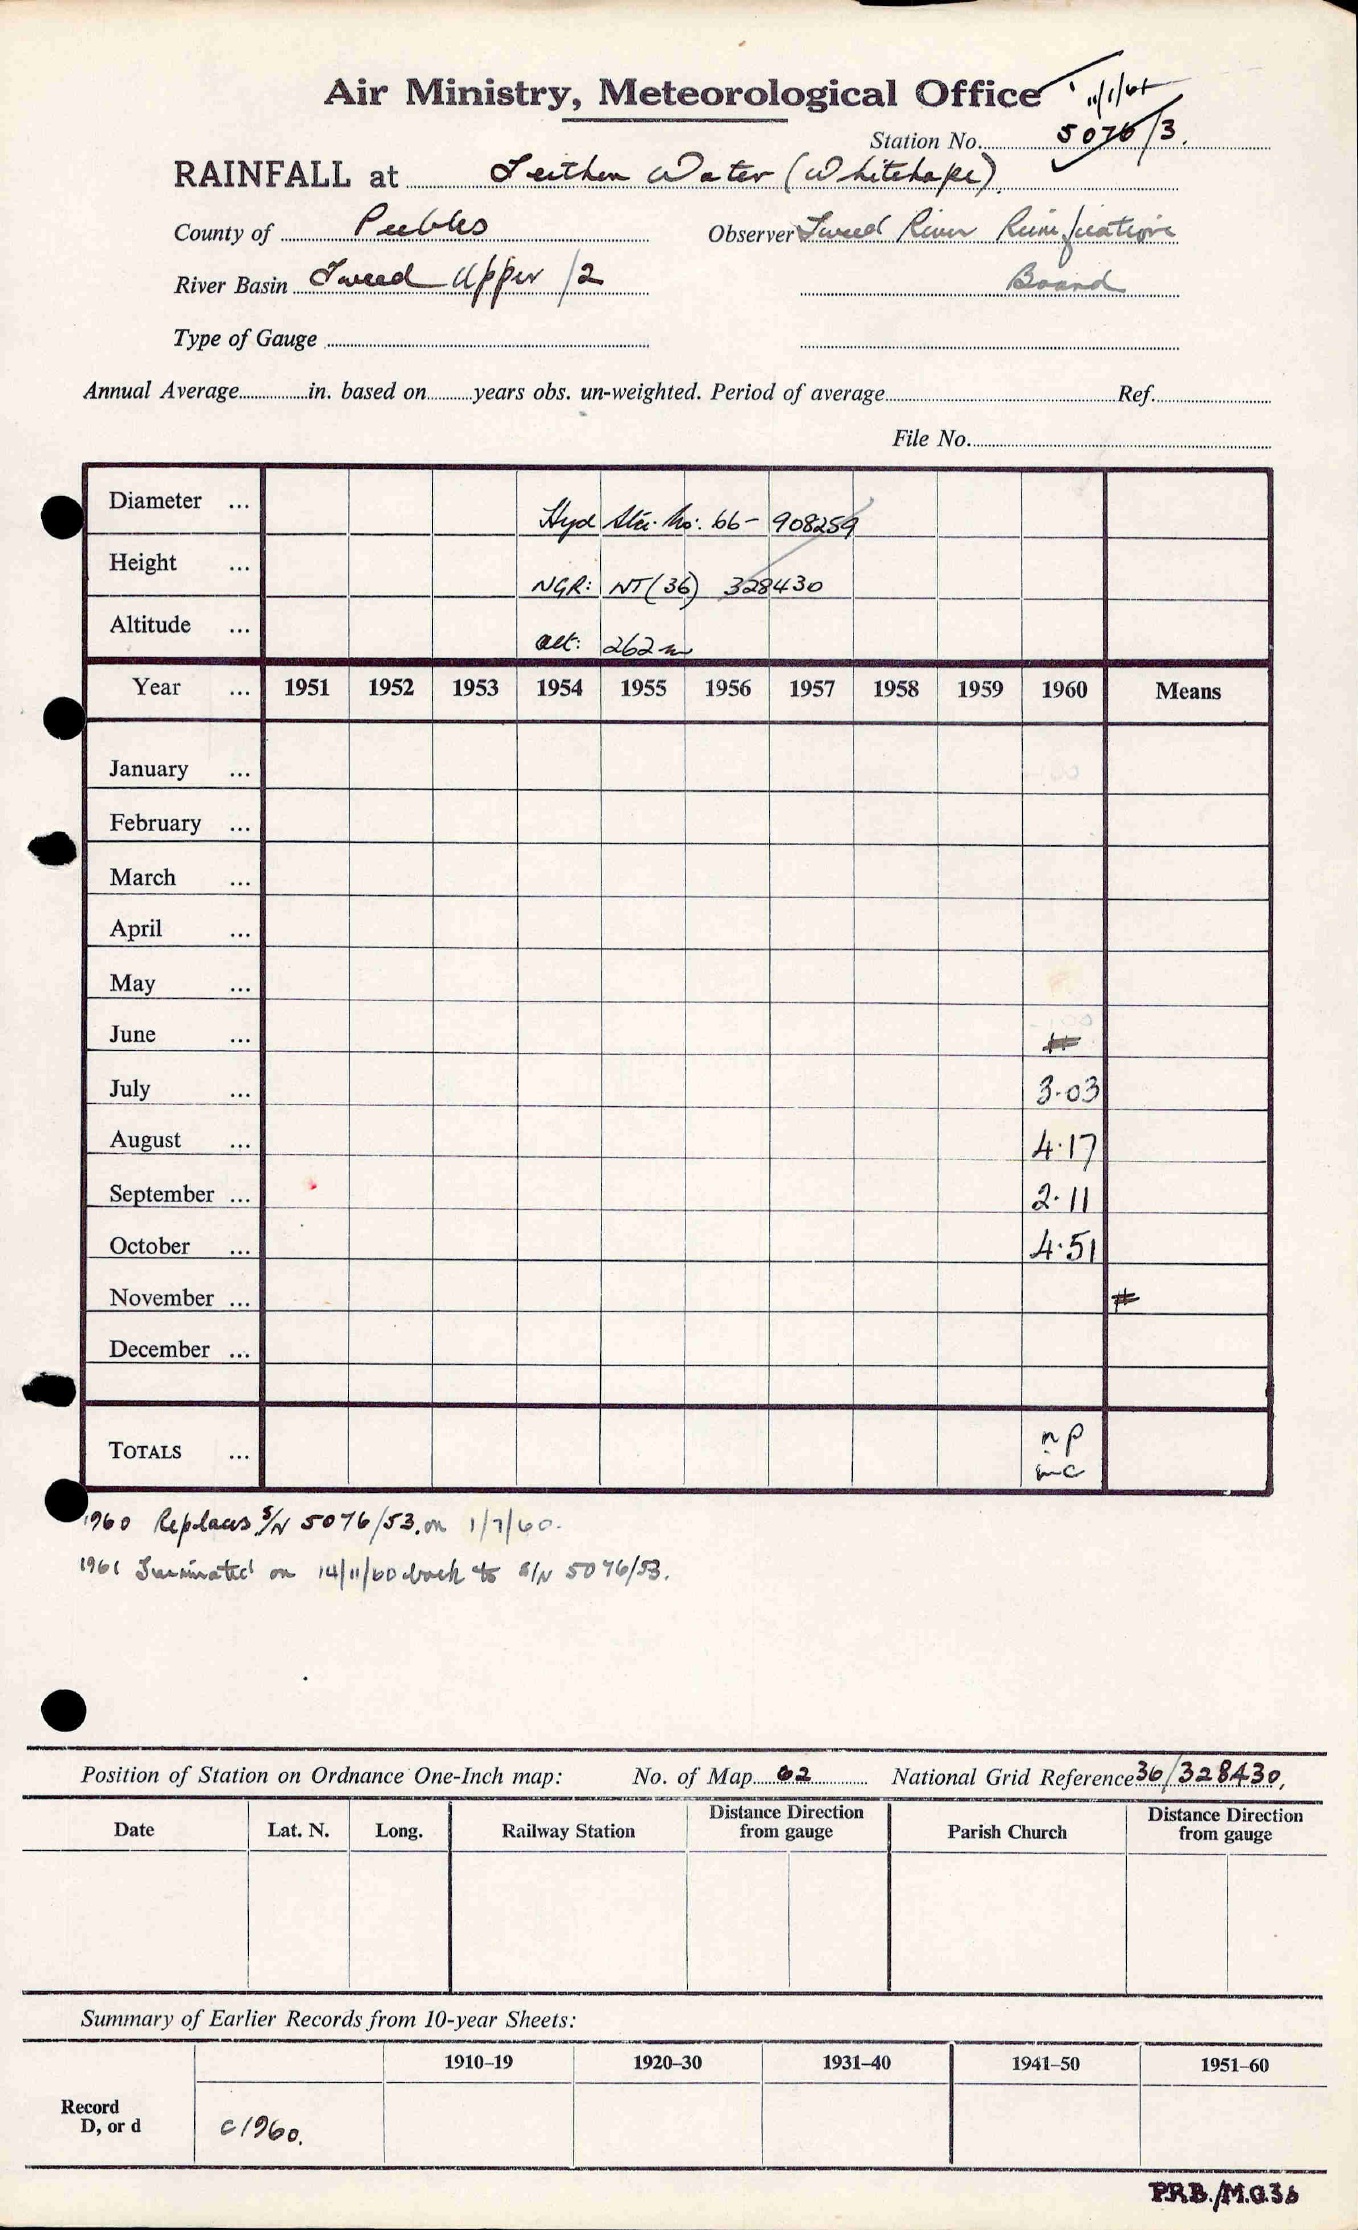 Air Ministry, Meteorological Office
11/1/61
Station No. 5076/3.
RAINFALL at Leithen Water (Whitehope)
County of Peebles Observer Tweed River Purification
River Basin Tweed Upper /2 Board
Type of Gauge
Annual Average in. based on years obs. un-weighted. Period of average Ref.
File No.
Diameter ... Hyd Stn. No: 66- 908259
Height ... NGR: NT(36) 328430
Altitude ... alt: 262 m
Year ... 1951 1952 1953 1954 1955 1956 1957 1958 1959 1960 Means
January ...
February ...
March ...
April ...
May ...
June ...
July ... 3.03
August ... 4.17
September ... 2.11
October ... 4.51
November ...
December ...
TOTALS ... n p
inc
1960 Replaces S/N 5076/53. on 1/7/60.
1961 Terminated on 14/11/60 back to S/N 5076/53.
Position of Station on Ordnance One-Inch map: No. of Map 62 National Grid Reference 36/328430,
Date Lat. N. Long. Railway Station Distance Direction from gauge Parish Church Distance Direction from gauge
Summary of Earlier Records from 10-year Sheets:
1910–19 1920–30 1931–40 1941–50 1951–60
Record
D, or d c1960.
P.R.B./M.O.36